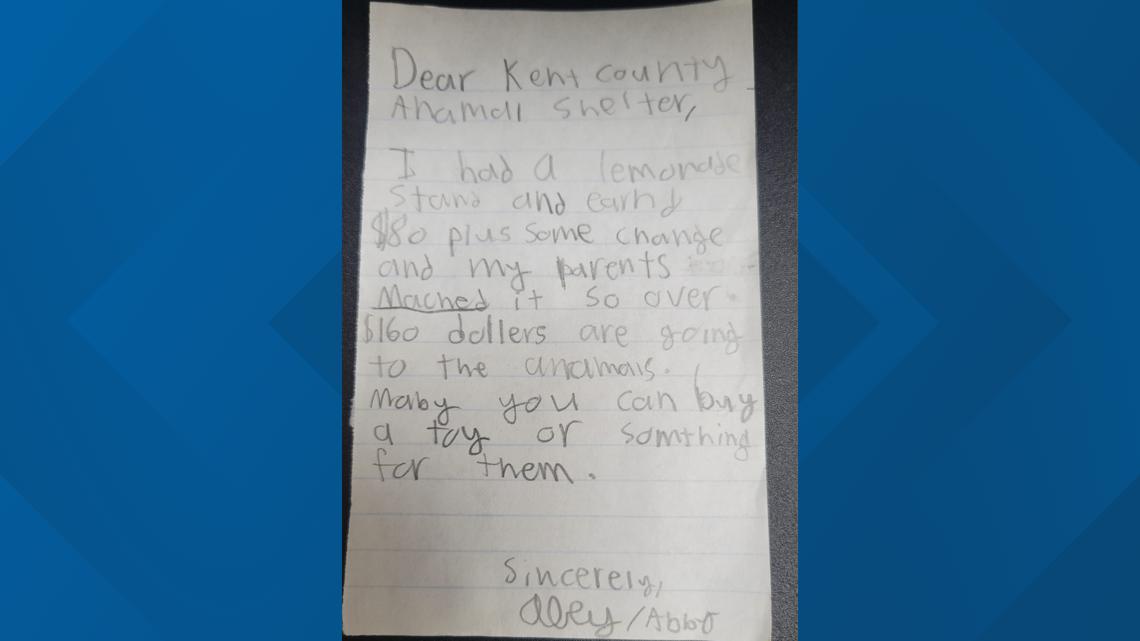 Dear Kent county
Anamall shelter,
I had a lemonade
stand and earnd
$80 plus some change
and my parents
Mached it so over
$160 dollers are going
to the anamals.
Maby you can buy
a toy or somthing
for them.
Sincerely,
/Abbo